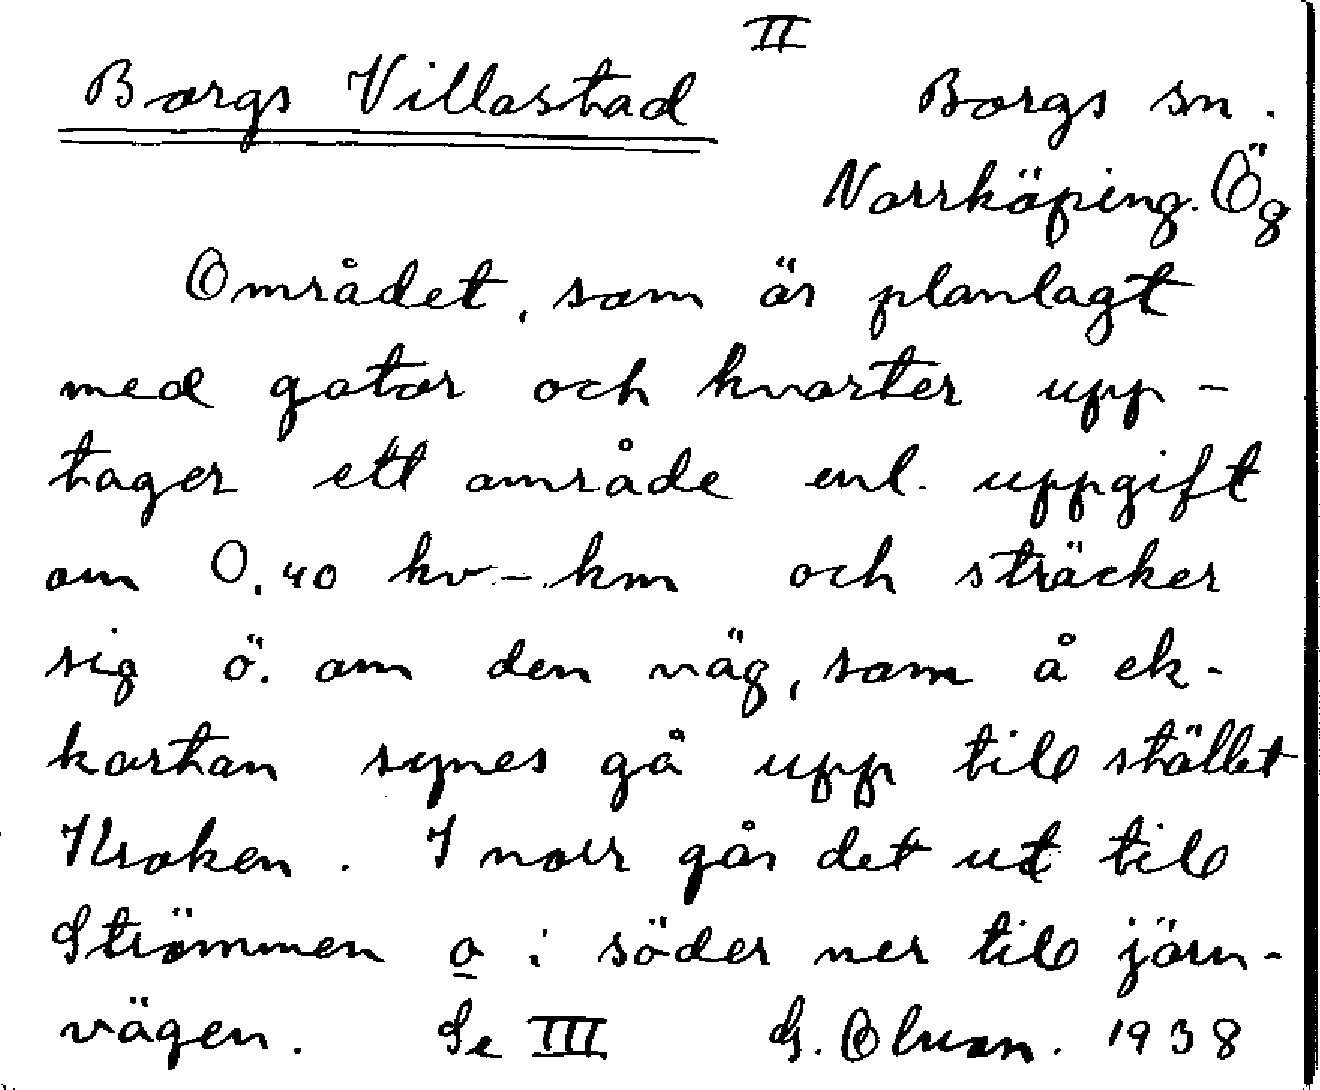 II
Borgs Villastad Borgs sn.
Norrköping. Ög
Området, som är planlagt
med gator och kvarter upp-
tager ett område enl. uppgift
om 0,40 kv-km och sträcker
sig ö. om den väg, som å ek-
kartan synes gå upp till stället
Kroken. I norr går det ut till
Strömmen o i söder ner till järn-
vägen. Se III G. Olsson. 1938